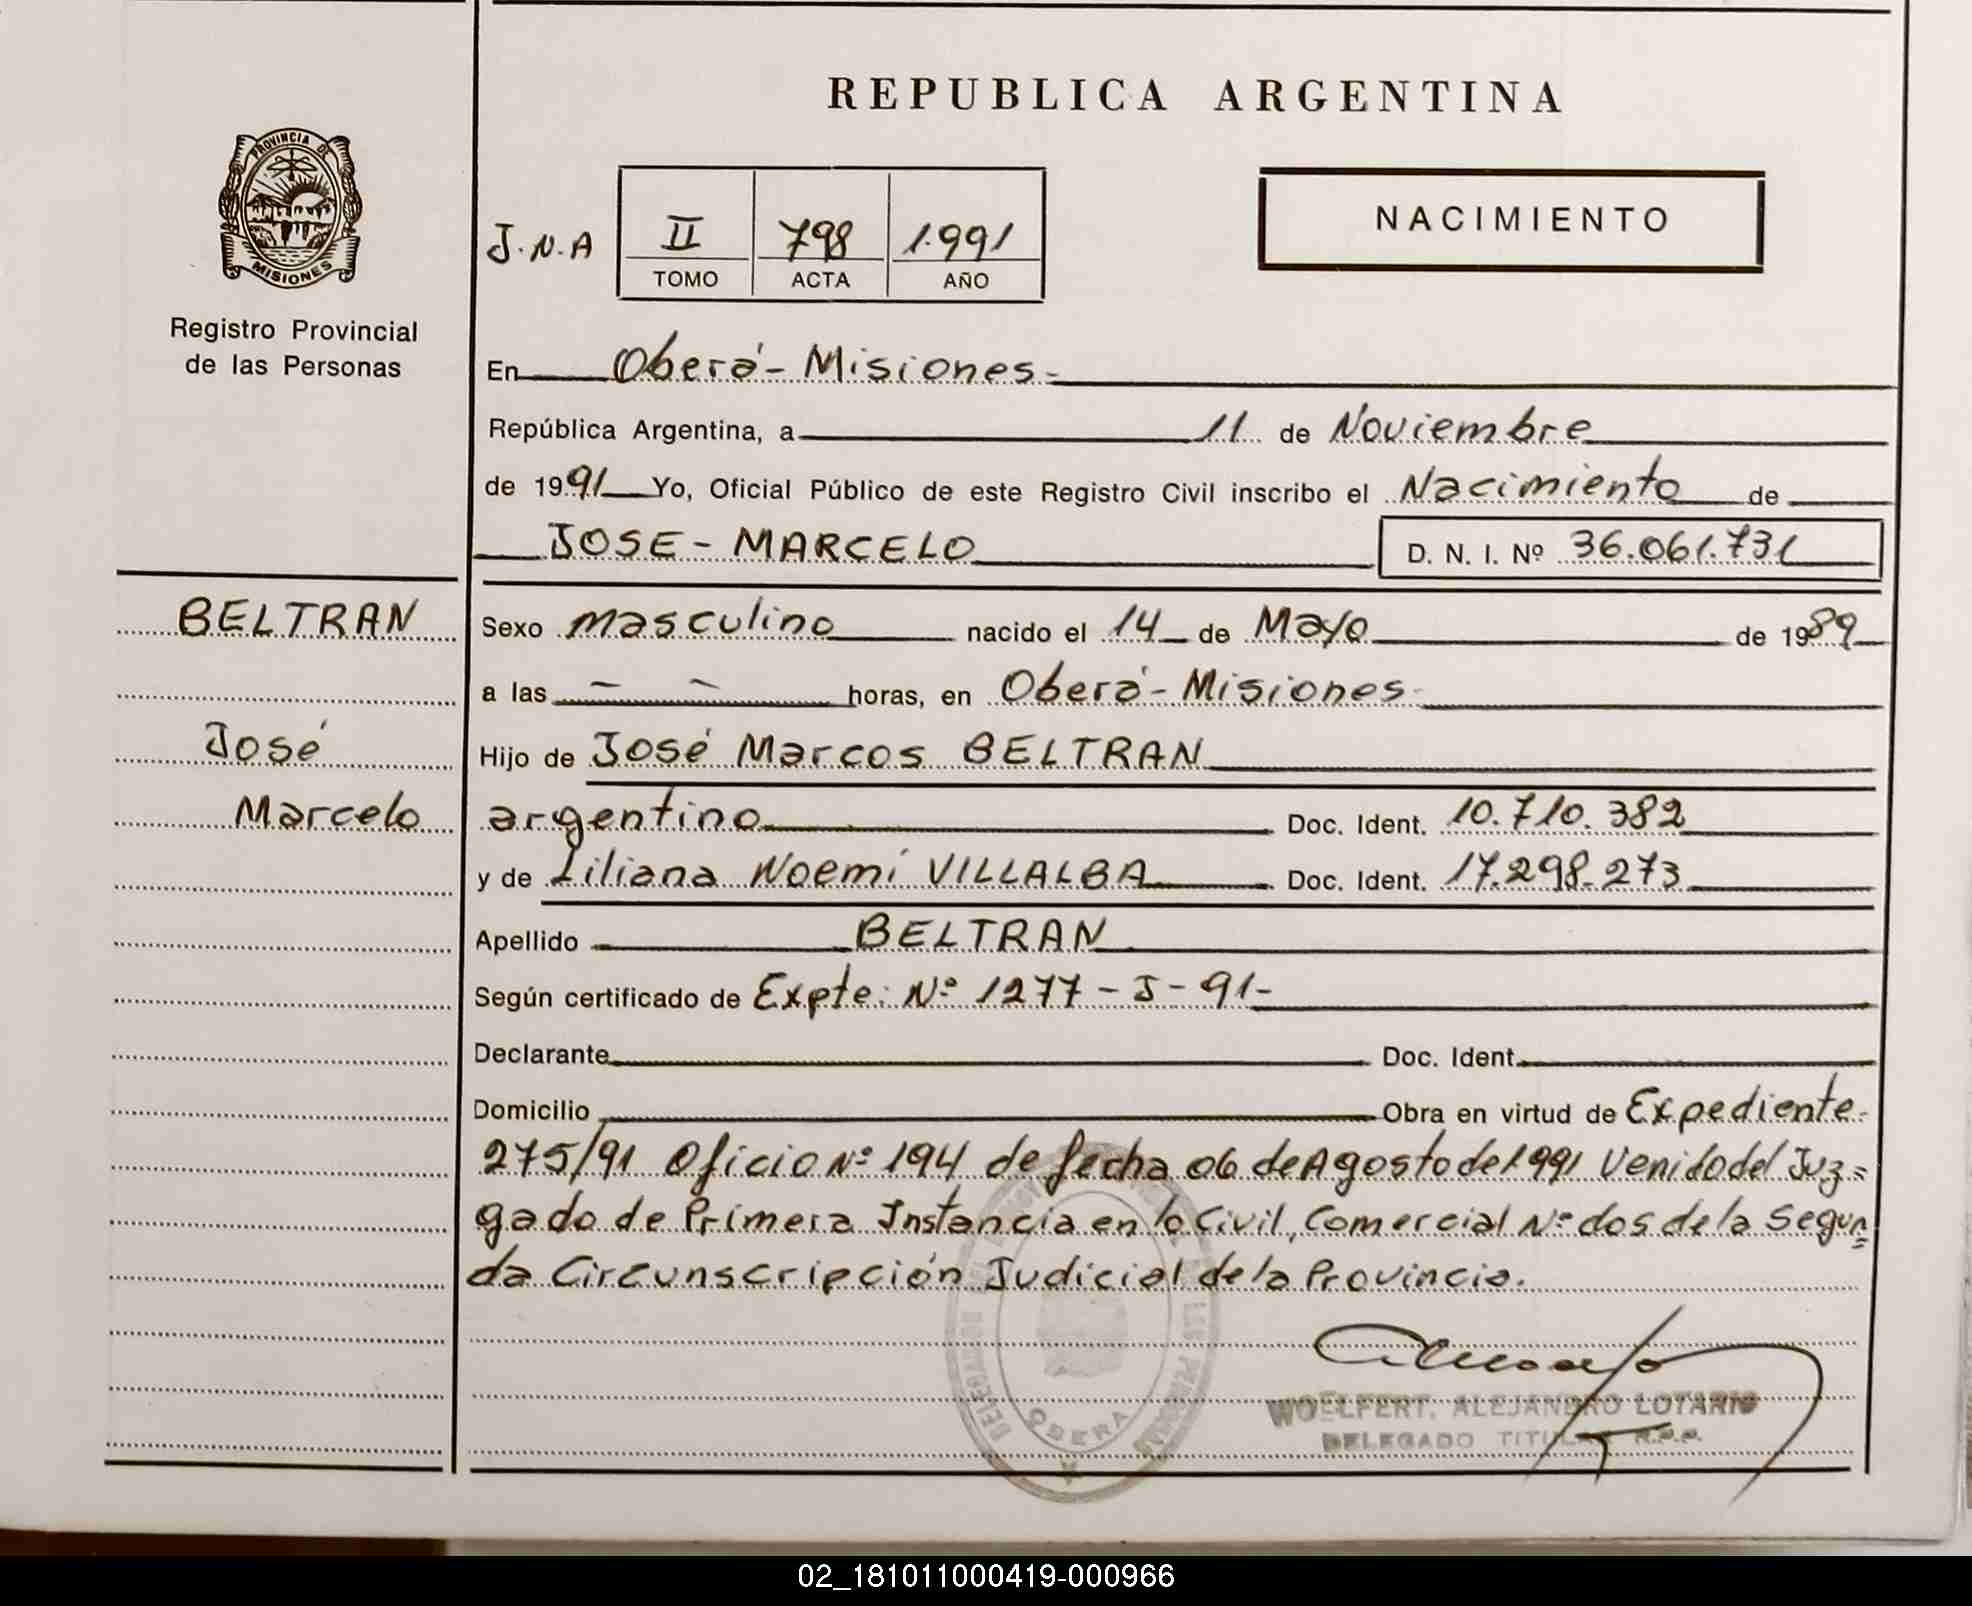 REPUBLICA ARGENTINA
PROVINCIA DE MISIONES
Registro Provincial
de las Personas
J.N.A
II 798 1.991
TOMO ACTA AÑO
NACIMIENTO
En Oberá - Misiones -
República Argentina, a 11 de Noviembre
de 1991 Yo, Oficial Público de este Registro Civil inscribo el Nacimiento de
JOSE - MARCELO D. N. I. Nº 36.061.731
BELTRAN
José
Marcelo
Sexo masculino nacido el 14 de Mayo de 1989
a las - - horas, en Oberá - Misiones -
Hijo de José Marcos BELTRAN
argentino Doc. Ident. 10.710.382
y de Liliana Noemí VILLALBA Doc. Ident. 17.298.273
Apellido BELTRAN
Según certificado de Expte: Nº 1277 - J - 91 -
Declarante Doc. Ident.
Domicilio Obra en virtud de Expediente
275/91 Oficio Nº 194 de fecha 06 de Agosto de 1991 Venido del Juz=
gado de Primera Instancia en lo Civil, Comercial Nº dos de la Segun=
da Circunscripción Judicial de la Provincia.
OBERA
WOELFERT, ALEJANDRO LOTARIO
DELEGADO TITULAR R.P.P.
02_181011000419-000966